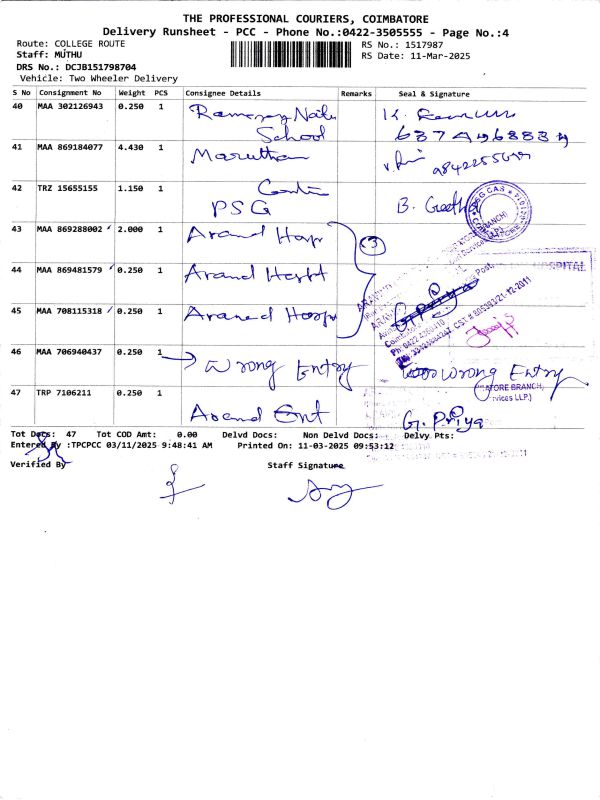 THE PROFESSIONAL COURIERS, COIMBATORE
Delivery Runsheet - PCC - Phone No.:0422-3505555 - Page No.:4
Route: COLLEGE ROUTE RS No.: 1517987
Staff: MUTHU RS Date: 11-Mar-2025
DRS No.: DCJB151798704
Vehicle: Two Wheeler Delivery
S No Consignment No Weight PCS Consignee Details Remarks Seal & Signature
40 MAA 302126943 0.250 1 School
41 MAA 869184077 4.430 1
42 TRZ 15655155 1.150 1 PSG B. Geetha
43 MAA 869288002 2.000 1 3
44 MAA 869481579 0.250 1
HOSPITAL
45 MAA 708115318 0.250 1
46 MAA 706940437 0.250 1 Wrong Entry Wrong Entry
47 TRP 7106211 0.250 1 Ent G. Priya
Tot Docs: 47 Tot COD Amt: 0.00 Delvd Docs: Non Delvd Docs: Delvy Pts:
Entered By :TPCPCC 03/11/2025 9:48:41 AM Printed On: 11-03-2025 09:53:12
Verified By Staff Signature